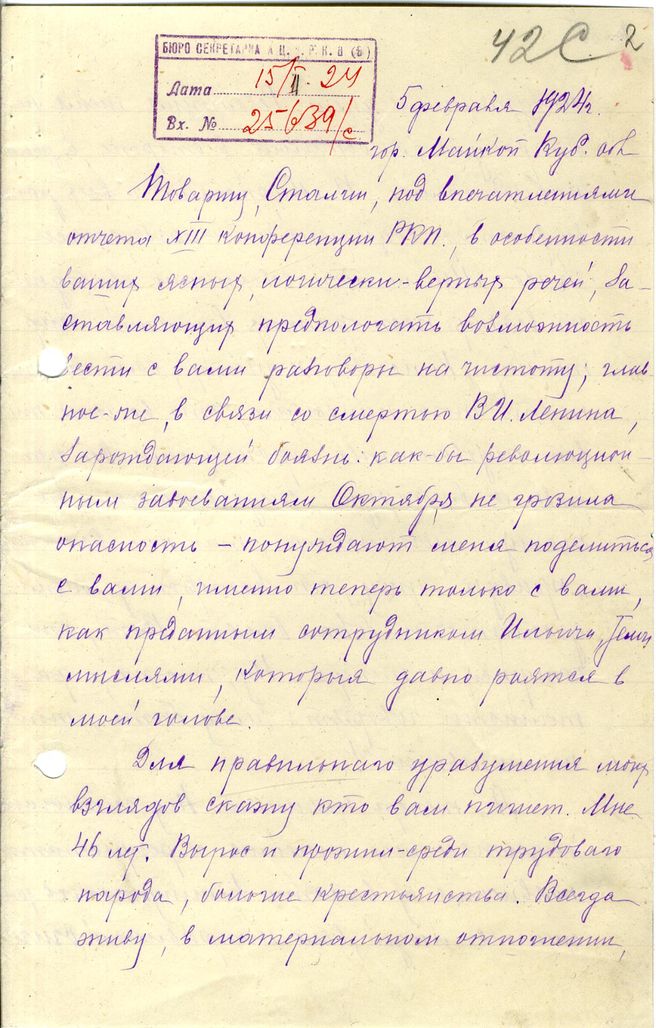 42С 2
БЮРО СЕКРЕТАРИАТА Ц.К. Р.К.П. (Б)
Дата 15/II 24
Вх. № 25639/с
5 февраля 1924 г.
гор. Майкоп Куб. обл
Товарищ, Сталин, под впечатлениями
отчета XIII конференции РКП., в особенности
ваших ясных, логически-верных речей, за-
ставляющих предпологать возможность
вести с вами разговоры на чистоту; глав
ное-же, в связи со смертью В.И. Ленина,
зарождающей боязнь: как-бы революцион-
ным завоеваниям Октября не грозила
опасность – понуждают меня поделиться
с вами, именно теперь только с вами,
как преданным сотрудником Ильича, теми
мыслями, которыя давно роятся в
моей голове.
Для правильнаго уразумения моих
взглядов скажу кто вам пишет. Мне
46 лет. Вырос и прожил-среди трудоваго
народа, более крестьянства. Всегда
живу, в материальном отношении,